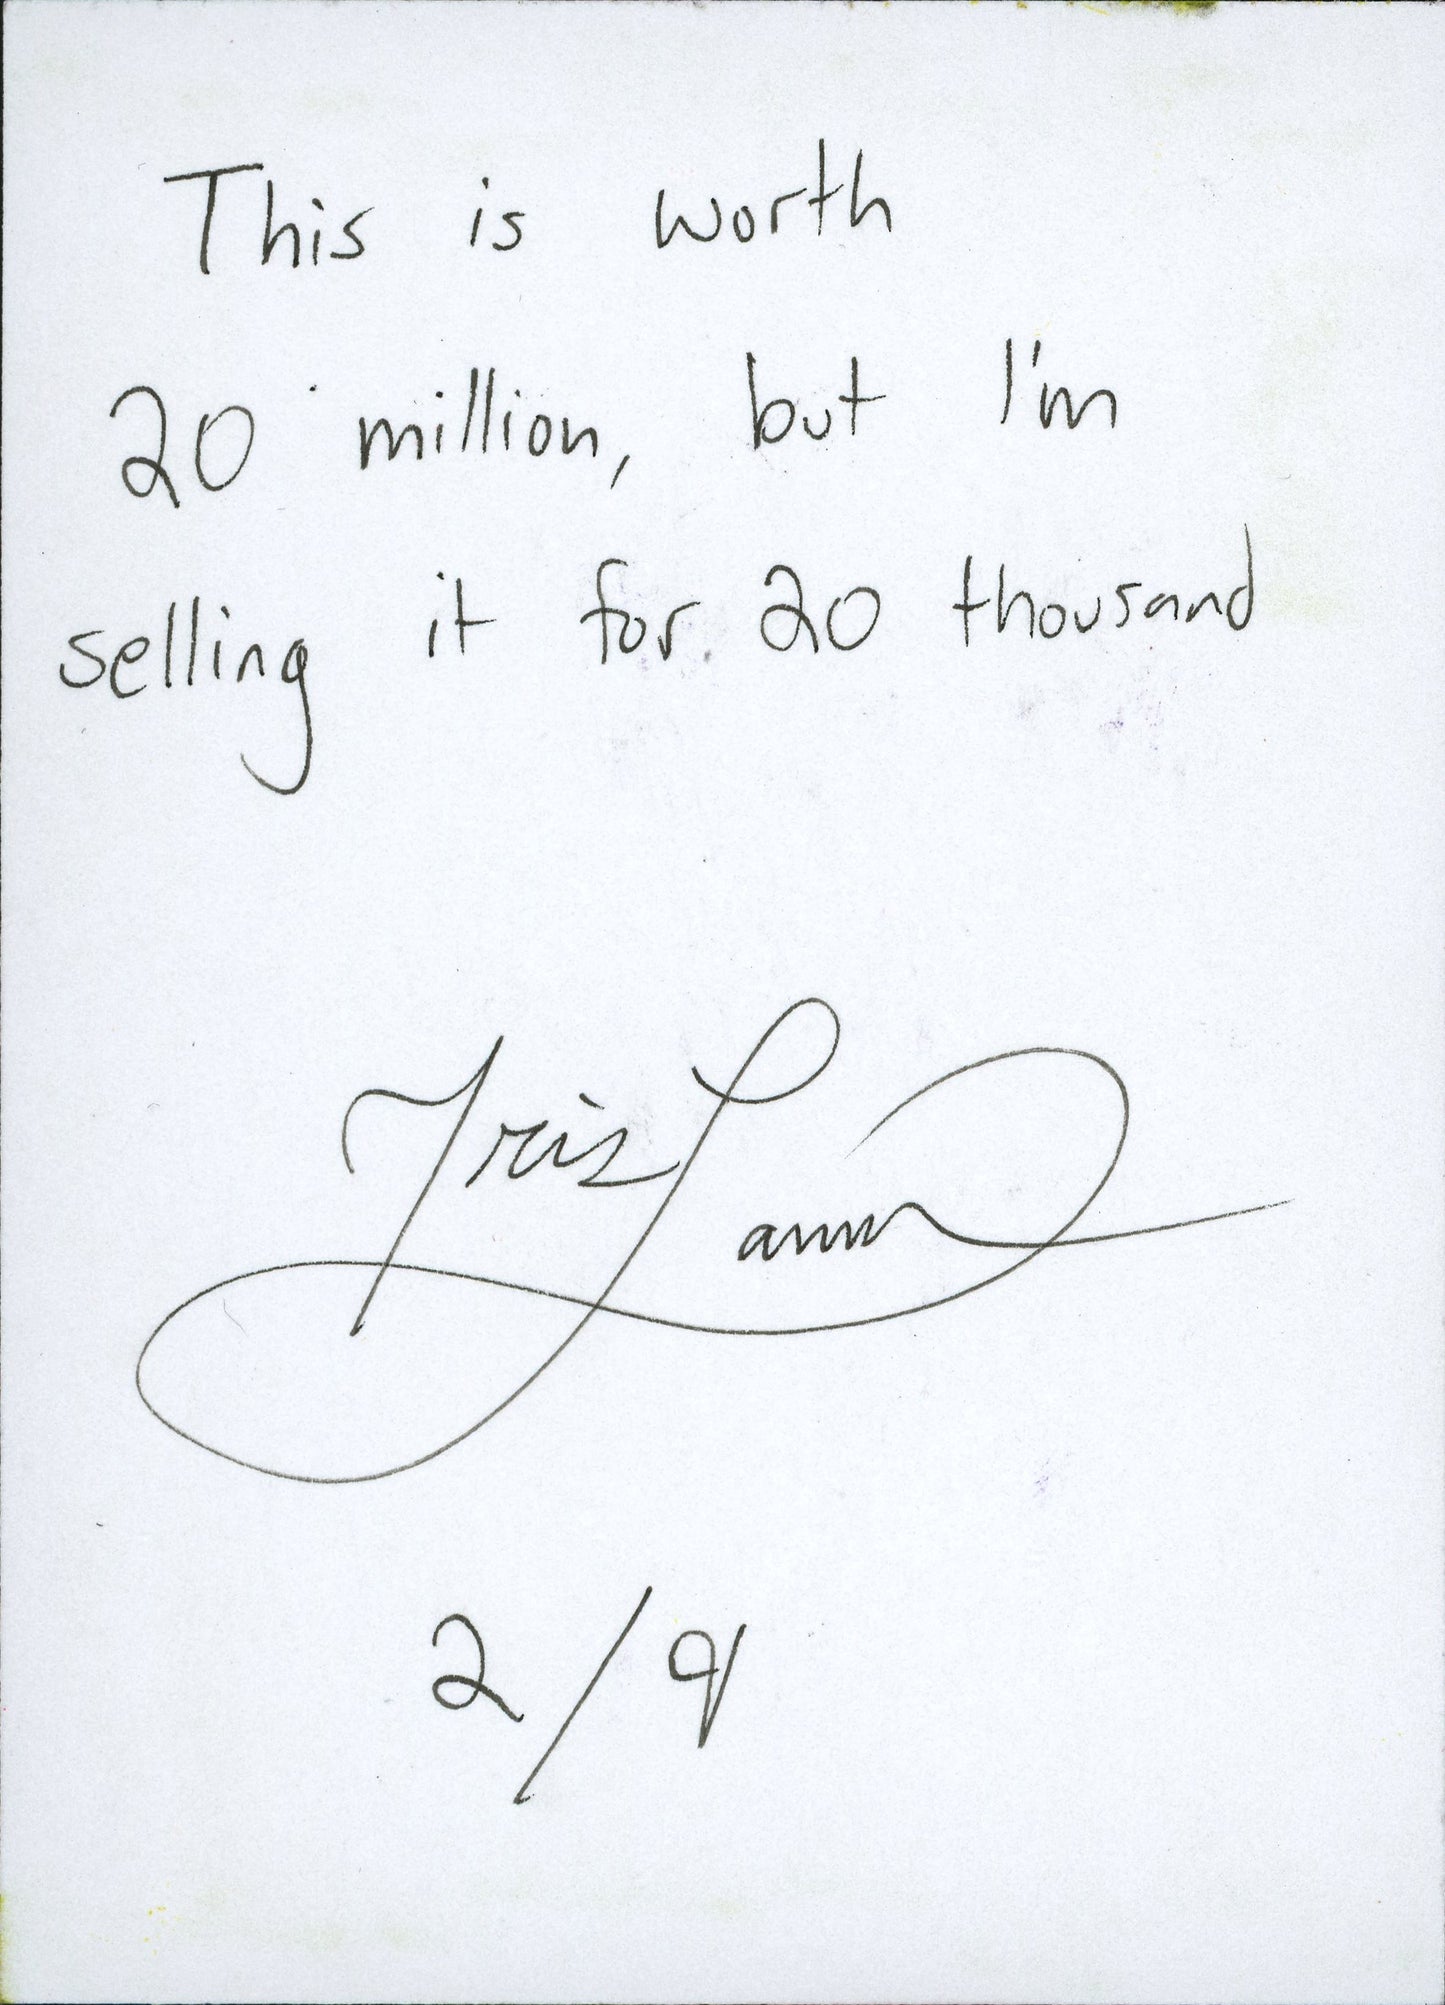 This is worth
20 million, but I'm
selling it for 20 thousand
Iris
2/9